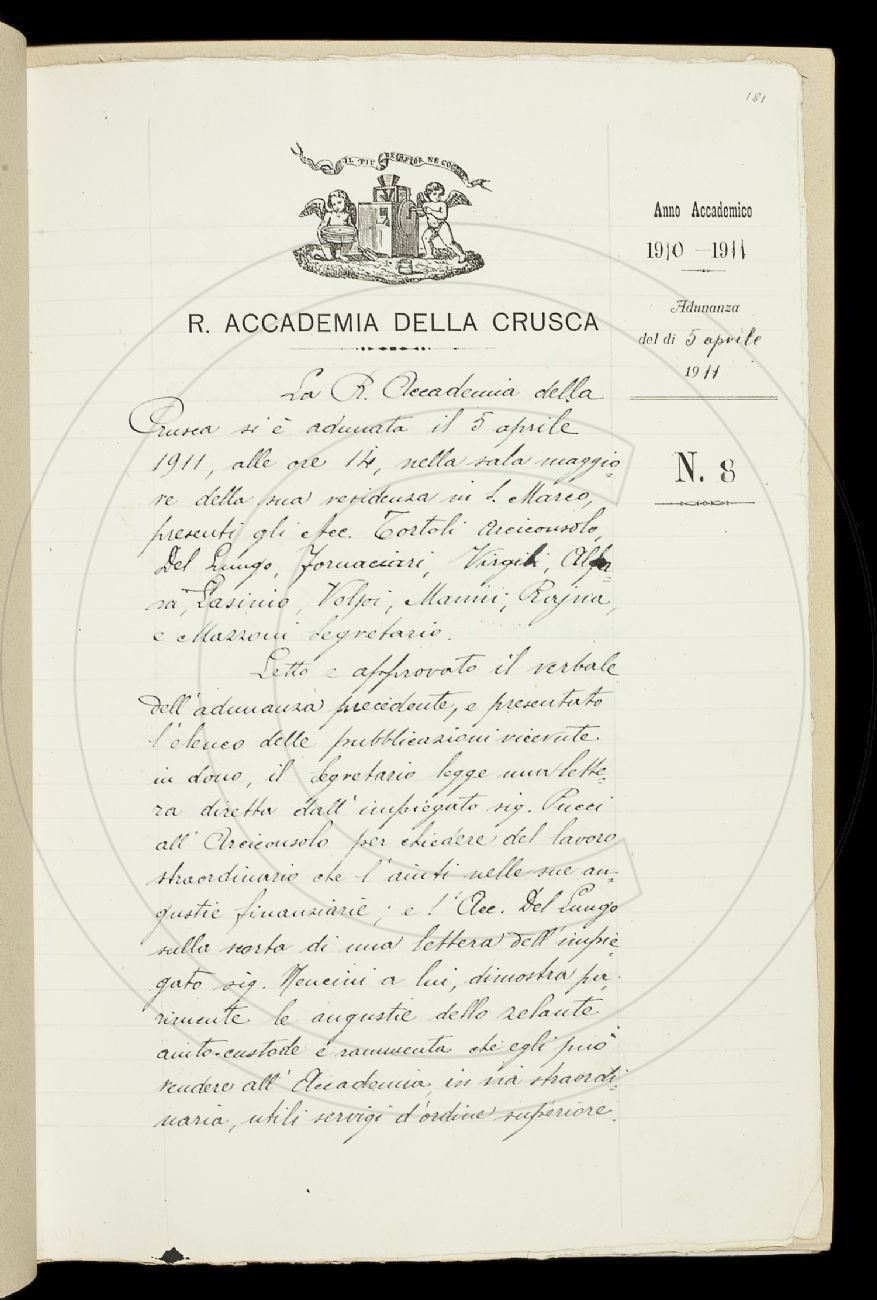 181
IL PIÙ BEL FIOR NE COGLIE
R. ACCADEMIA DELLA CRUSCA
Anno Accademico
1910-1911
Adunanza
del dì 5 aprile
1911
N. 8
La R. Accademia della
Crusca si è adunata il 5 aprile
1911, alle ore 14, nella sala maggio-
re della sua residenza in S. Marco,
presenti gli Acc. Tortoli Arciconsolo,
Del Lungo, Fornaciari, Virgili, Alfa-
na, Lasinio, Volpi, Manni, Rajna,
e Mazzoni Segretario.
Letto e approvato il verbale
dell'adunanza precedente, e presentato
l'elenco delle pubblicazioni ricevute
in dono, il Segretario legge una lette-
ra diretta dall'impiegato sig. Pucci
all'Arciconsolo per chiedere del lavoro
straordinario che l'aiuti nelle sue an-
gustie finanziarie; e l'Acc. Del Lungo
sulla scorta di una lettera dell'impie-
gato sig. Mencini a lui, dimostra pa-
rimente le angustie dello zelante
aiuto-custode e rammenta che egli può
rendere all'Accademia, in via straordi-
naria, utili servigi d'ordine superiore.